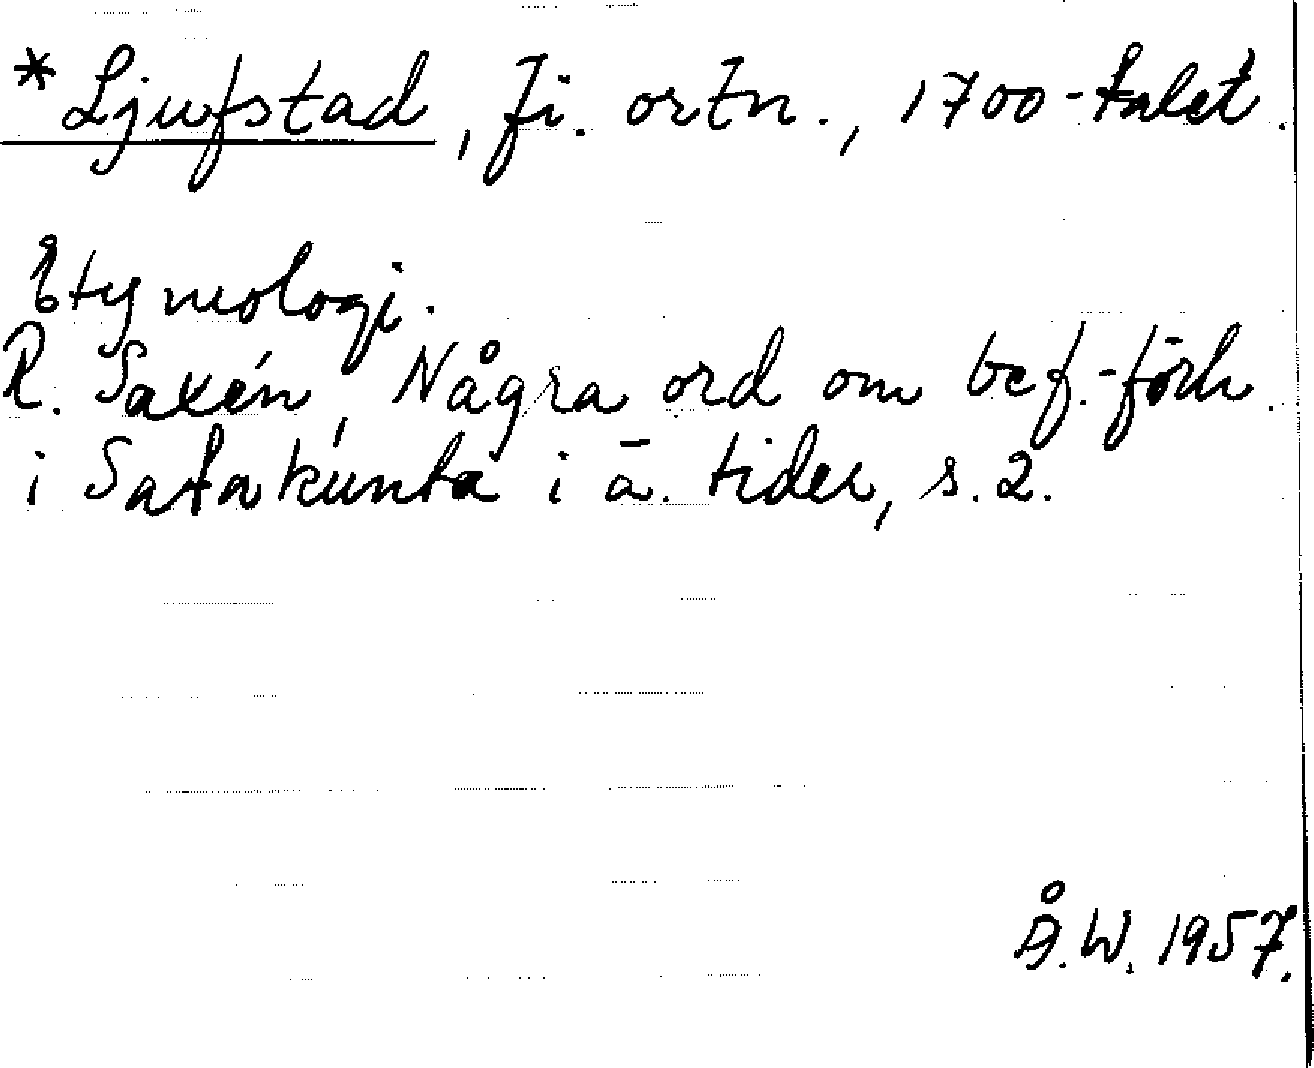 *Ljufstad, fi. ortn., 1700-talet.
Etymologi.
R. Saxén, Några ord om bef.-förh.
i Satakunta i ä. tider, s. 2.
Å.W. 1957.